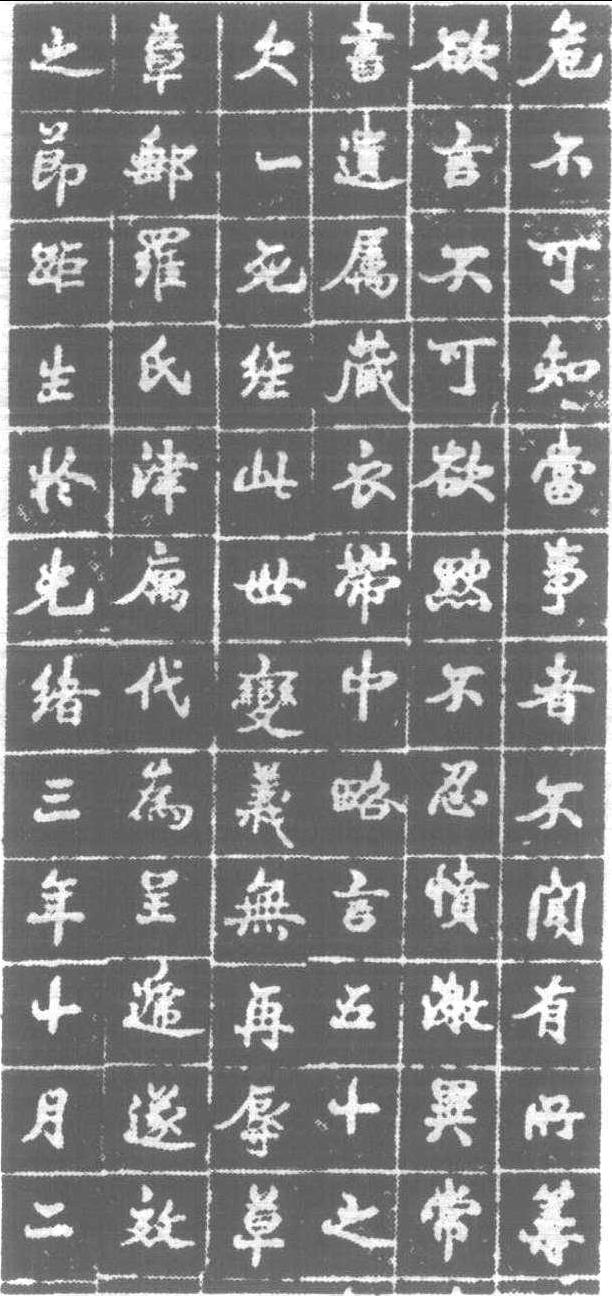 危不可知當事者不聞有所籌
欲言不可欲默不忍憤激異常
書遺属藏衣帶中略言五十之
欠一死經此世變義無再辱草
章郵羅氏津庽代為呈遞遂效
之節距生於光緒三年十月二